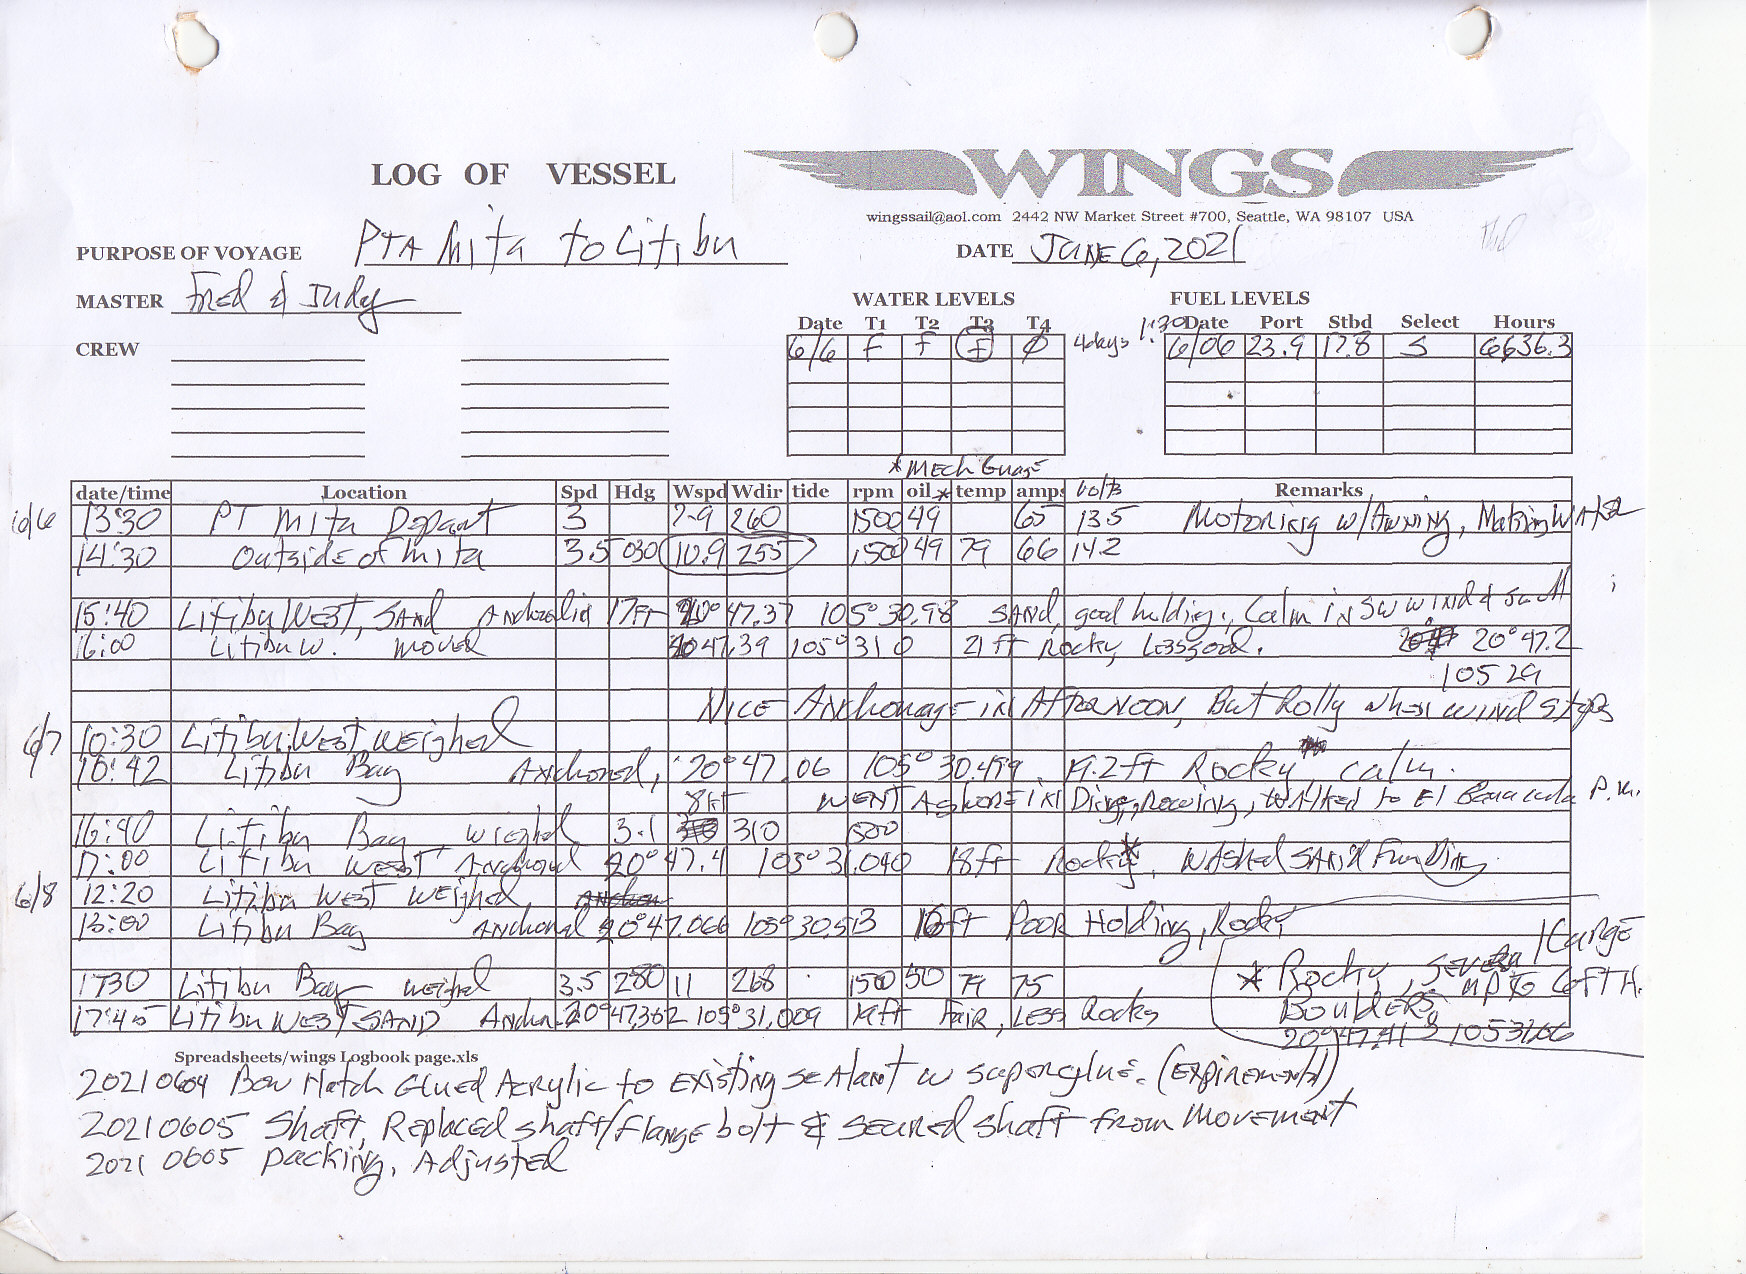 WINGS
LOG OF VESSEL
wingssail@aol.com 2442 NW Market Street #700, Seattle, WA 98107 USA
PURPOSE OF VOYAGE PTA Mita to Litibu DATE JUNE 6, 2021
MASTER Fred & Judy WATER LEVELS FUEL LEVELS
Date T1 T2 T3 T4 1:30 Date Port Stbd Select Hours
CREW 6/6 F F F Ø 4days 6/06 23.9 17.8 S 6636.3
*Mech Guage
date/time Location Spd Hdg Wspd Wdir tide rpm oil * temp amps volts Remarks
6/6 13:30 PT Mita Depart 3 7-9 260 1500 49 65 13.5 Motoring w/Awning, Making Water
14:30 Outside of Mita 3.5 030 10.9 255 1500 49 79 66 14.2
15:40 Litibu West, Sand Anchored in 17ft 20° 47.37 105° 30.98 Sand, good holding, Calm in SW wind &
16:00 Litibu W. moved 20 47.39 105° 31 0 21 ft Rocky, Less good. 20° 47.2
105 29
Nice Anchorage in Afternoon, But Rolly when wind stops
6/7 10:30 Litibu West weighed
10:42 Litibu Bay Anchored, 20° 47.06 105° 30.499 19.2 ft Rocky calm.
8 kt Went Ashore in Dingy, rowing, walked to El Barracuda P.M.
16:40 Litibu Bay weighed 3.1 310 1500
17:00 Litibu West Anchored 20° 47.4 105° 31.040 18ft Rocky*, Washed Sand From Ding
6/8 12:20 Litibu West Weighed,
13:00 Litibu Bay Anchored 20° 47.066 105° 30.513 16ft Poor Holding, Rocky
17:30 Litibu Bay weighed 3.5 280 11 268 1500 50 79 75
* Rocky, several large
Boulders, up to 6ft H.
20° 47.41 105 31.06
17:45 Litibu West Sand Anchor 20° 47.362 105° 31.009 19ft Fair, Less Rocks
Spreadsheets/wings Logbook page.xls
20210604 Bow Hatch Glued Acrylic to existing sealant w superglue. (Expirement)
20210605 Shaft, Replaced shaft/flange bolt & secured shaft from movement
20210605 packing, Adjusted